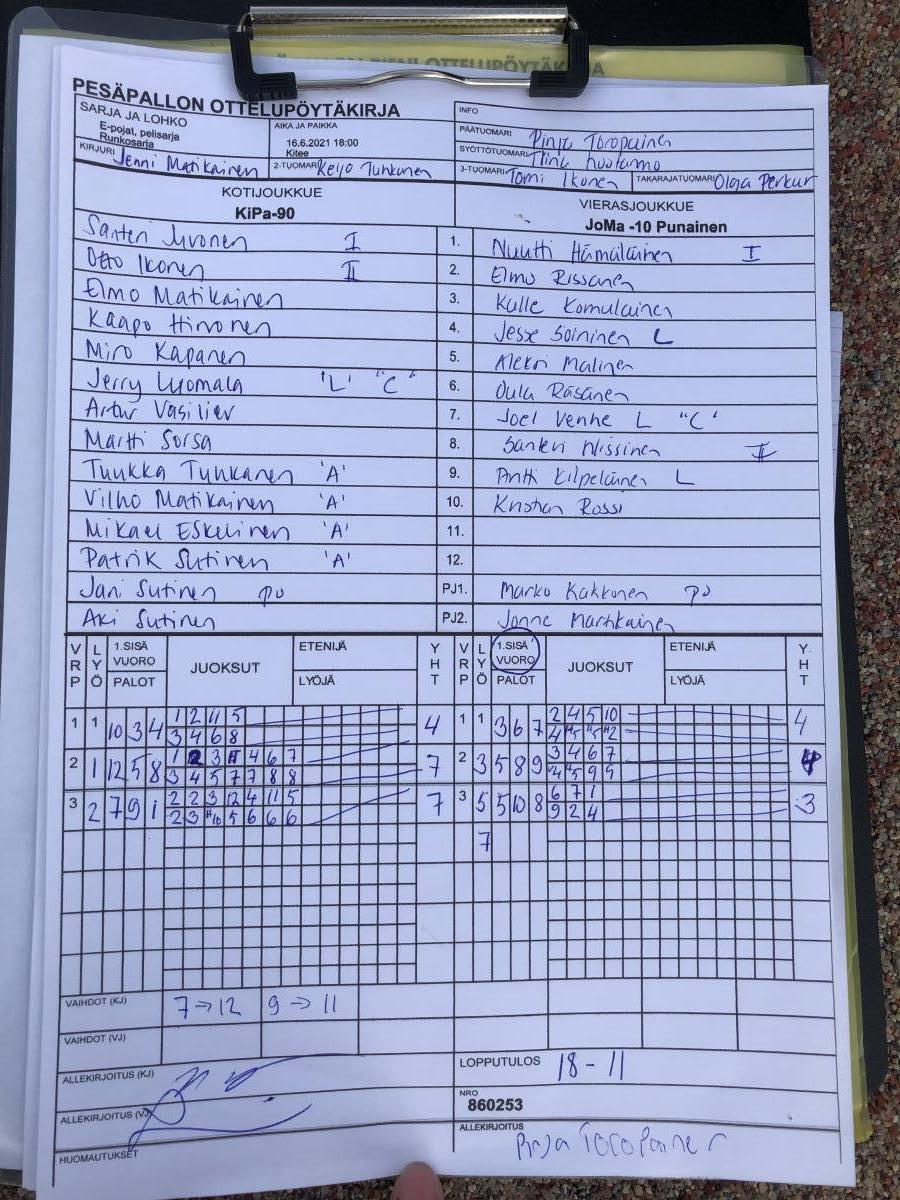 PESÄPALLON OTTELUPÖYTÄKIRJA
SARJA JA LOHKO
E-pojat, pelisarja
Runkosarja
AIKA JA PAIKKA
16.6.2021 18:00
Kitee
INFO
PÄÄTUOMARI Pinja Toropainen
SYÖTTÖTUOMARI
KIRJURI Jenni Matikainen
2-TUOMARI Keijo Tuhkanen
3-TUOMARI Tomi Ikonen
TAKARAJATUOMARI Olga
KOTIJOUKKUE
KiPa-90
VIERASJOUKKUE
JoMa -10 Punainen
Santeri Juvonen I 1. Nuutti Hämäläinen I
Otto Ikonen II 2. Elmo Rissanen
Elmo Matikainen 3. Kalle Komulainen
Kaapo Hirvonen 4. Jesse Soininen L
Miro Kapanen 5. Aleksi Malinen
Jerry Luomala 'L' "C" 6. Oula Räsänen
Artur Vasiliev 7. Joel Venhe L "C"
Martti Sorsa 8. Santeri Nissinen II
Tuukka Tuhkanen 'A' 9. Antti Kilpeläinen L
Vilho Matikainen 'A' 10. Kristian Rossi
Mikael Eskelinen 'A' 11.
Patrik Sutinen 'A' 12.
Jani Sutinen PJ1. Marko Kakkonen
Aki Sutinen PJ2. Jonne Martikainen
VRP LYÖ 1.SISÄ VUORO PALOT JUOKSUT ETENIJÄ LYÖJÄ YHT VRP LYÖ 1.SISÄ VUORO PALOT JUOKSUT ETENIJÄ LYÖJÄ YHT
1 1 10 3 4 1 2 11 5 4 1 1 3 6 7 2 4 5 10 4
3 4 6 8
2 1 12 5 8 1 2 3 4 6 7 7 2 3 5 8 9 3 4 6 7 4
3 4 5 7 7 8 8
3 2 7 9 1 2 2 3 12 4 11 5 7 3 5 5 10 8 6 7 1 3
2 3 H10 5 6 6 6 9 2 4
7
VAIHDOT (KJ) 7→12 9→11
VAIHDOT (VJ)
ALLEKIRJOITUS (KJ)
LOPPUTULOS 18-11
ALLEKIRJOITUS (VJ)
NRO
860253
HUOMAUTUKSET
ALLEKIRJOITUS
Pinja Toropainen